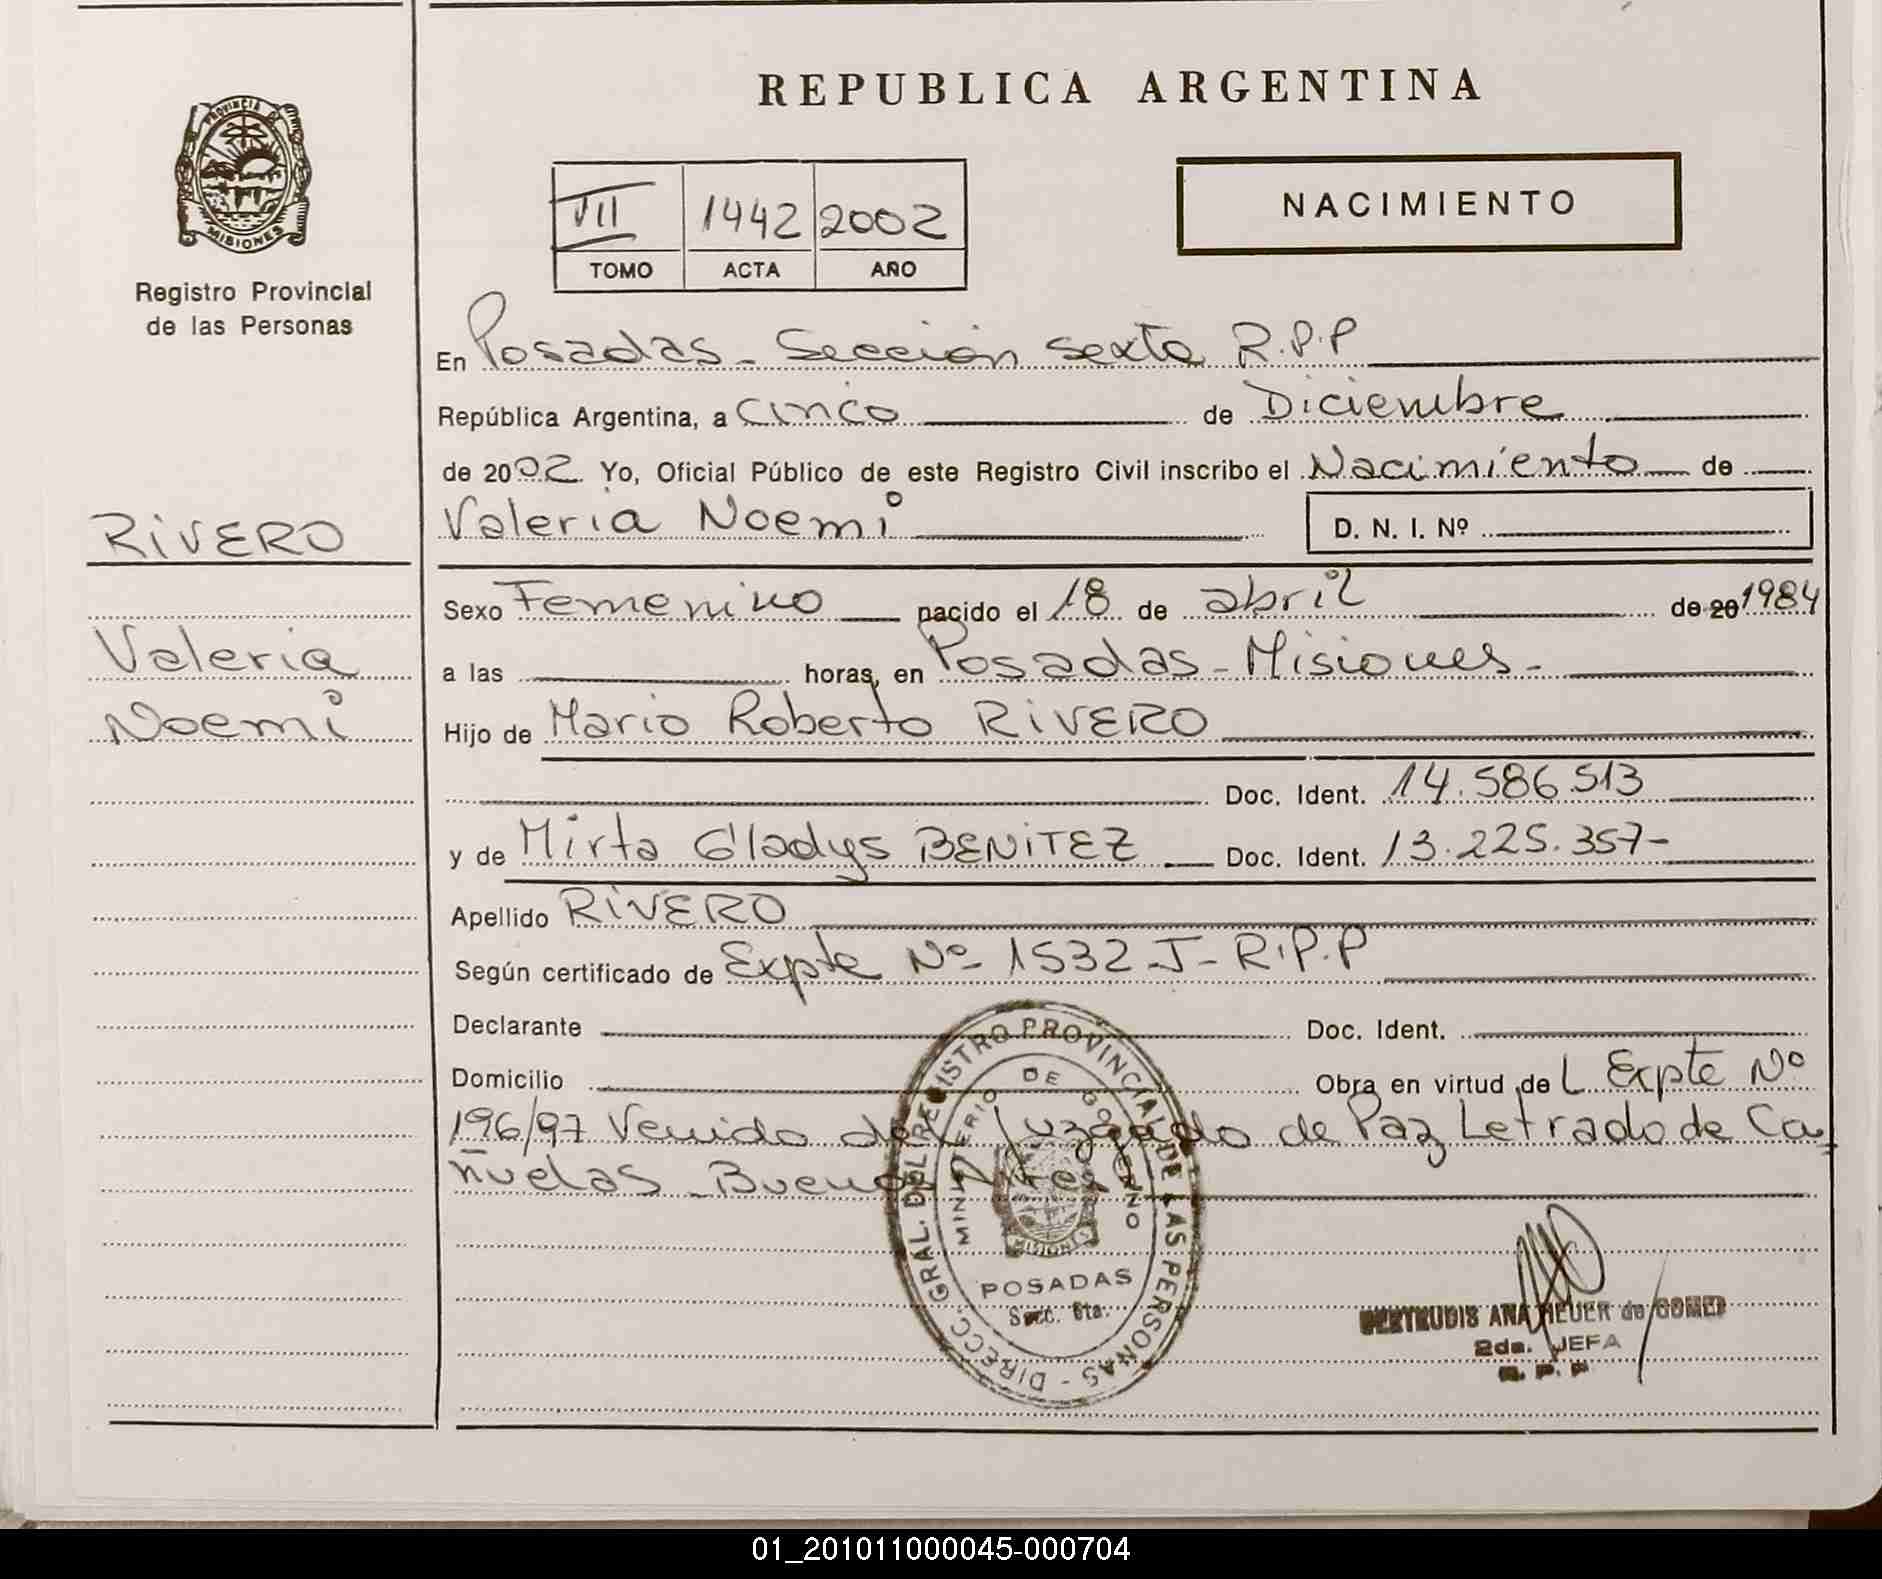 REPUBLICA ARGENTINA
PROVINCIA DE
MISIONES
Registro Provincial
de las Personas
VII 1442 2002
TOMO ACTA AÑO
NACIMIENTO
En Posadas - Sección sexta R.P.P
República Argentina, a cinco de Diciembre
de 2002 Yo, Oficial Público de este Registro Civil inscribo el Nacimiento de
RIVERO
Valeria Noemi D. N. I. Nº
Sexo Femenino nacido el 18 de abril de 20 1984
Valeria
a las horas, en Posadas - Misiones -
Noemi
Hijo de Mario Roberto RIVERO
Doc. Ident. 14.586.513
y de Mirta Gladys BENITEZ Doc. Ident. 13.225.357-
Apellido RIVERO
Según certificado de Expte Nº 1532 J - R.P.P
Declarante Doc. Ident.
Domicilio Obra en virtud de L Expte Nº
196/97 Venido del Juzgado de Paz Letrado de Ca
ñuelas - Buenos Aires
DIRECC. GRAL. DEL REGISTRO PROVINCIAL DE LAS PERSONAS -
MINISTERIO DE GOBIERNO
MISIONES
POSADAS
Secc. 6ta.
GERTRUDIS ANA HEUER de GOMEZ
2da. JEFA
R. P. P
01_201011000045-000704